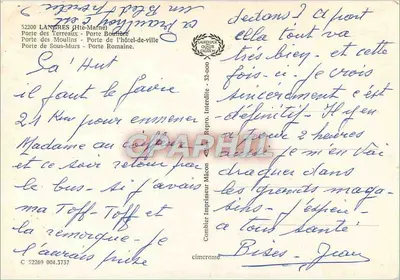 52200 LANGRES (Hte-Marne)
Porte des Terreaux - Porte Boulière
Porte des Moulins - Porte de l'hôtel-de-ville
Porte de Sous-Murs - Porte Romaine.
Sa! Hut
il faut le faire
21 Km pour emmener
Madame au
et ce soir retour par
le bus - si j'avais
ma Toff-Toff et
la remorque - je
l'aurais prise
C 52269 000.5737
dedans? à part
cela tout va
très bien, et cette
fois-ci je crois
sincèrement c'est
définitif - Il y en
a pour 2 heures
je m'en vai
draguer dans
les grands maga-
sins - j'espère
a tous santé
Bises - Jean
Combier Imprimeur Mâcon
Repro. Interdite - 52-000
cimcrome
CARTES DE QUALITE
DELCAMPHIL